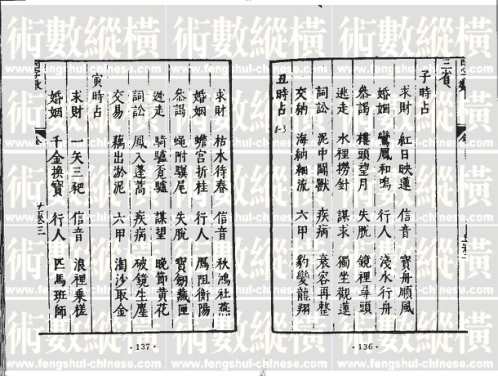 子時占
求財 紅日映蓮 信音 寶舟順風
婚姻 鸞鳳和鳴 行人 淺水行舟
參謁 樓頭望月 失脫 鏡裡尋頭
逃走 水裡撈針 謀求 獨坐觀蓮
詞訟 泥中鬪獸 疾病 衰容再整
交納 海納細流 六甲 豹變龍翔
丑時占
·136·
求財 枯水待春 信音 秋鴻社燕
婚姻 蟾宮折桂 行人 鴈阻衡陽
參謁 蠅附驥尾 失脫 寶劍藏匣
逃走 騎驢覓驢 謀望 晚節黃花
詞訟 鳳入蓬蒿 疾病 破鏡生塵
交易 藕出淤泥 六甲 淘沙取金
寅時占
求財 一矢三豝 信音 浪裡乘槎
婚姻 千金換寶 行人 匹馬班師
·137·
術數縱橫
www.fengshui-chinese.com